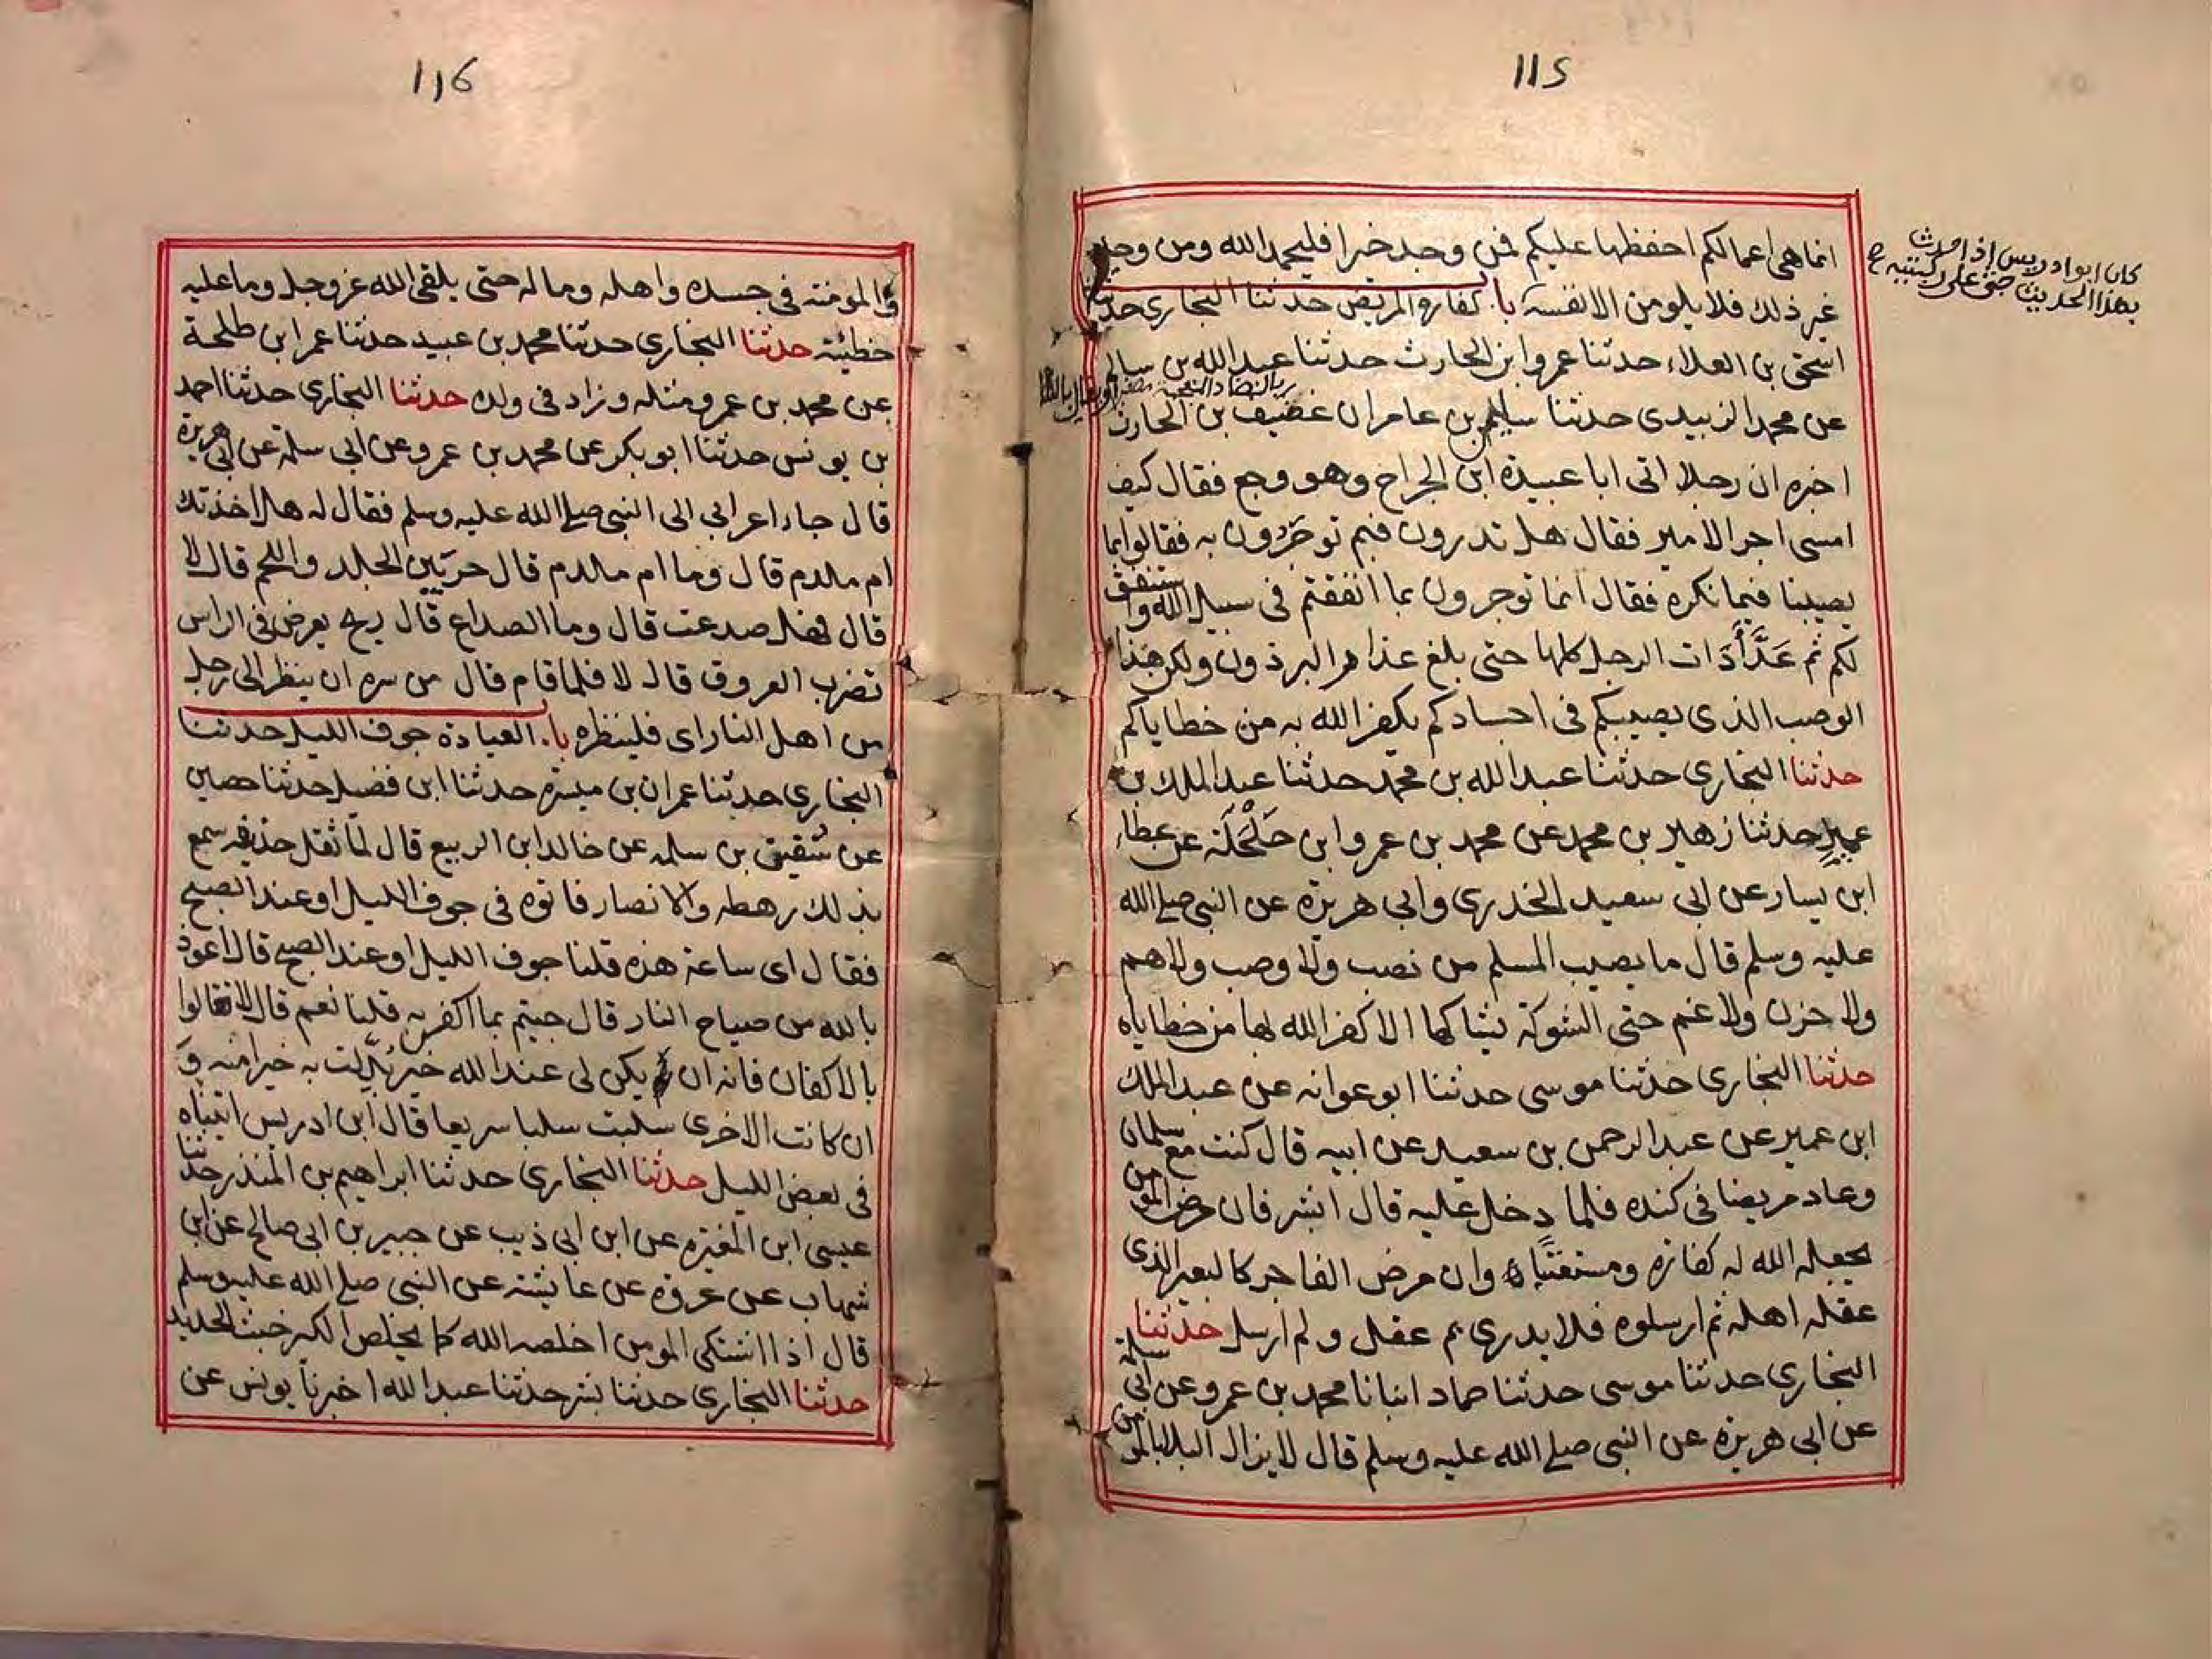 115
انما هى اعمالكم احفظها عليكم فمن وجد خيرا فليحمد الله ومن وجد
كان ابو ادريس اذا حدث
بهذا الحديث جثى على ركبتيه
غير ذلك فلا يلومن الا نفسه باب كفارة المريض حدثنا البخارى حدثنا
اسحق بن العلاء حدثنا عمرو ابن الحارث حدثنا عبد الله بن سالم
عن محمد الزبيدى حدثنا سليم بن عامر ان غضيف بن الحارث
اخبره ان رجلا اتى ابا عبيدة ابن الجراح وهو وجع فقال كيف
امسى اجر الامير فقال هل تدرون فيم توجرون به فقالوا بما
يصيبنا فيما نكره فقال انما توجرون بما انفقتم فى سبيل الله واستنفق
لكم ثم عَدَّ أَدَات الرحل كلها حتى بلغ عذار البرذون ولكن هذا
الوصب الذى يصيبكم فى اجسادكم يكفر الله به من خطاياكم
حدثنا البخارى حدثنا عبد الله بن محمد حدثنا عبد الملك بن
عمير حدثنا زهير بن محمد عن محمد بن عمرو ابن حَلْحَلَة عن عطاء
ابن يسار عن ابى سعيد الخدرى وابى هريرة عن النبى صلى الله
عليه وسلم قال ما يصيب المسلم من نصب ولا وصب ولا هم
ولا حزن ولا غم حتى الشوكة يشاكها الا كفر الله بها من خطاياه
حدثنا البخارى حدثنا موسى حدثنا ابو عوانه عن عبد الملك
ابن عمير عن عبد الرحمن بن سعيد عن ابيه قال كنت مع سلمان
وعاد مريضا فى كنده فلما دخل عليه قال ابشر فان مرض المومن
يجعله الله له كفارة ومستعتبا وان مرض الفاجر كالبعير الذى
عقله اهله ثم ارسلوه فلا يدرى بم عقل ولم ارسل حدثنا
البخارى حدثنا موسى حدثنا حماد انبانا محمد بن عمرو عن ابى سلمة
عن ابى هريرة عن النبى صلى الله عليه وسلم قال لا يزال البلا بالمومن
116
والمومنة فى جسده واهله وماله حتى يلقى الله عز وجل وما عليه
خطيئة حدثنا البخارى حدثنا محمد بن عبيد حدثنا عمر ابن طلحة
عن محمد بن عمرو ومثله وزاد فى ولده حدثنا البخارى حدثنا احمد
بن يونس حدثنا ابو بكر عن محمد بن عمرو عن ابى سلمة عن ابى هريرة
قال جاء اعرابى الى النبى صلى الله عليه وسلم فقال له هل اخذتك
ام ملدم قال وما ام ملدم قال حر بين الجلد واللحم قال لا
قال فهل صدعت قال وما الصداع قال ريح يعرض فى الراس
تضرب العروق قال لا فلما قام قال من سره ان ينظر الى رجل
من اهل النار اى فلينظره باب العيادة جوف الليل حدثنا
البخارى حدثنا عمران بن ميسرة حدثنا ابن فضيل حدثنا حصين
عن شقيق بن سلمه عن خالد ابن الربيع قال لما ثقل حذيفه سمع
بذلك رهطه والانصار فاتوه فى جوف الليل او عند الصبح
فقال اى ساعة هذه قلنا جوف الليل او عند الصبح قال اعوذ
بالله من صباح النار قال جيتم بما اكفن به قلنا نعم قال لا تغالوا
بالاكفان فانه ان يكن لى عند الله خير بُدِّلت به خيرا منه و
ان كانت الاخرى سلبت سلبا سريعا قال ابن ادريس اتيناه
فى بعض الليل حدثنا البخارى حدثنا ابراهيم بن المنذر حدثنا
عيسى ابن المغيره عن ابن ابى ذيب عن جبير بن ابى صالح عن ابن
شهاب عن عروه عن عايشة عن النبى صلى الله عليه وسلم
قال اذا اشتكى المومن اخلصه الله كما يخلص الكير خبث الحديد
حدثنا البخارى حدثنا بشر حدثنا عبد الله اخبرنا يونس عن